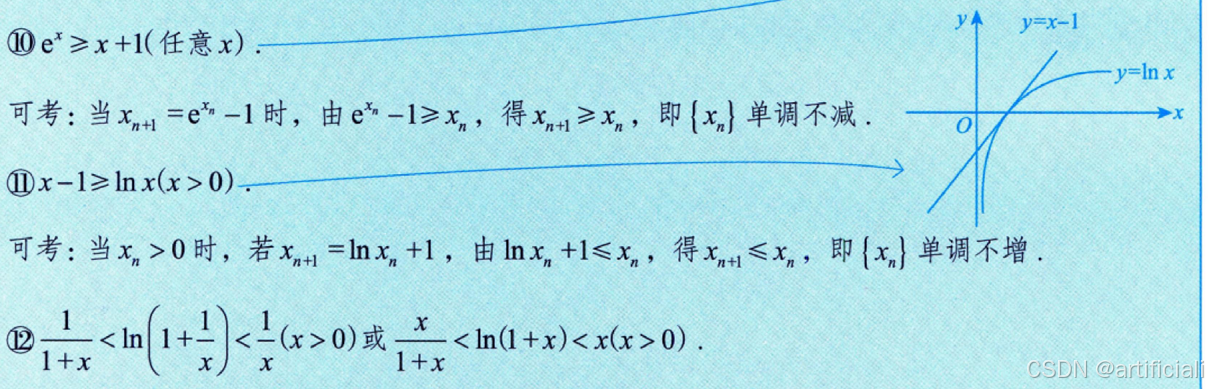 ⑩ eˣ ⩾ x+1(任意x).
可考：当 xₙ₊₁ = e^{xₙ} −1 时，由 e^{xₙ} −1 ⩾ xₙ，得 xₙ₊₁ ⩾ xₙ，即{xₙ}单调不减.
⑪ x−1 ⩾ ln x(x>0).
可考：当 xₙ >0 时，若 xₙ₊₁ = ln xₙ +1，由 ln xₙ +1 ⩽ xₙ，得 xₙ₊₁ ⩽ xₙ，即{xₙ}单调不增.
⑫ 1/(1+x) < ln(1+1/x) < 1/x (x>0)或 x/(1+x) < ln(1+x) < x(x>0).
y
y=x−1
y=ln x
O
x
CSDN @artificiali